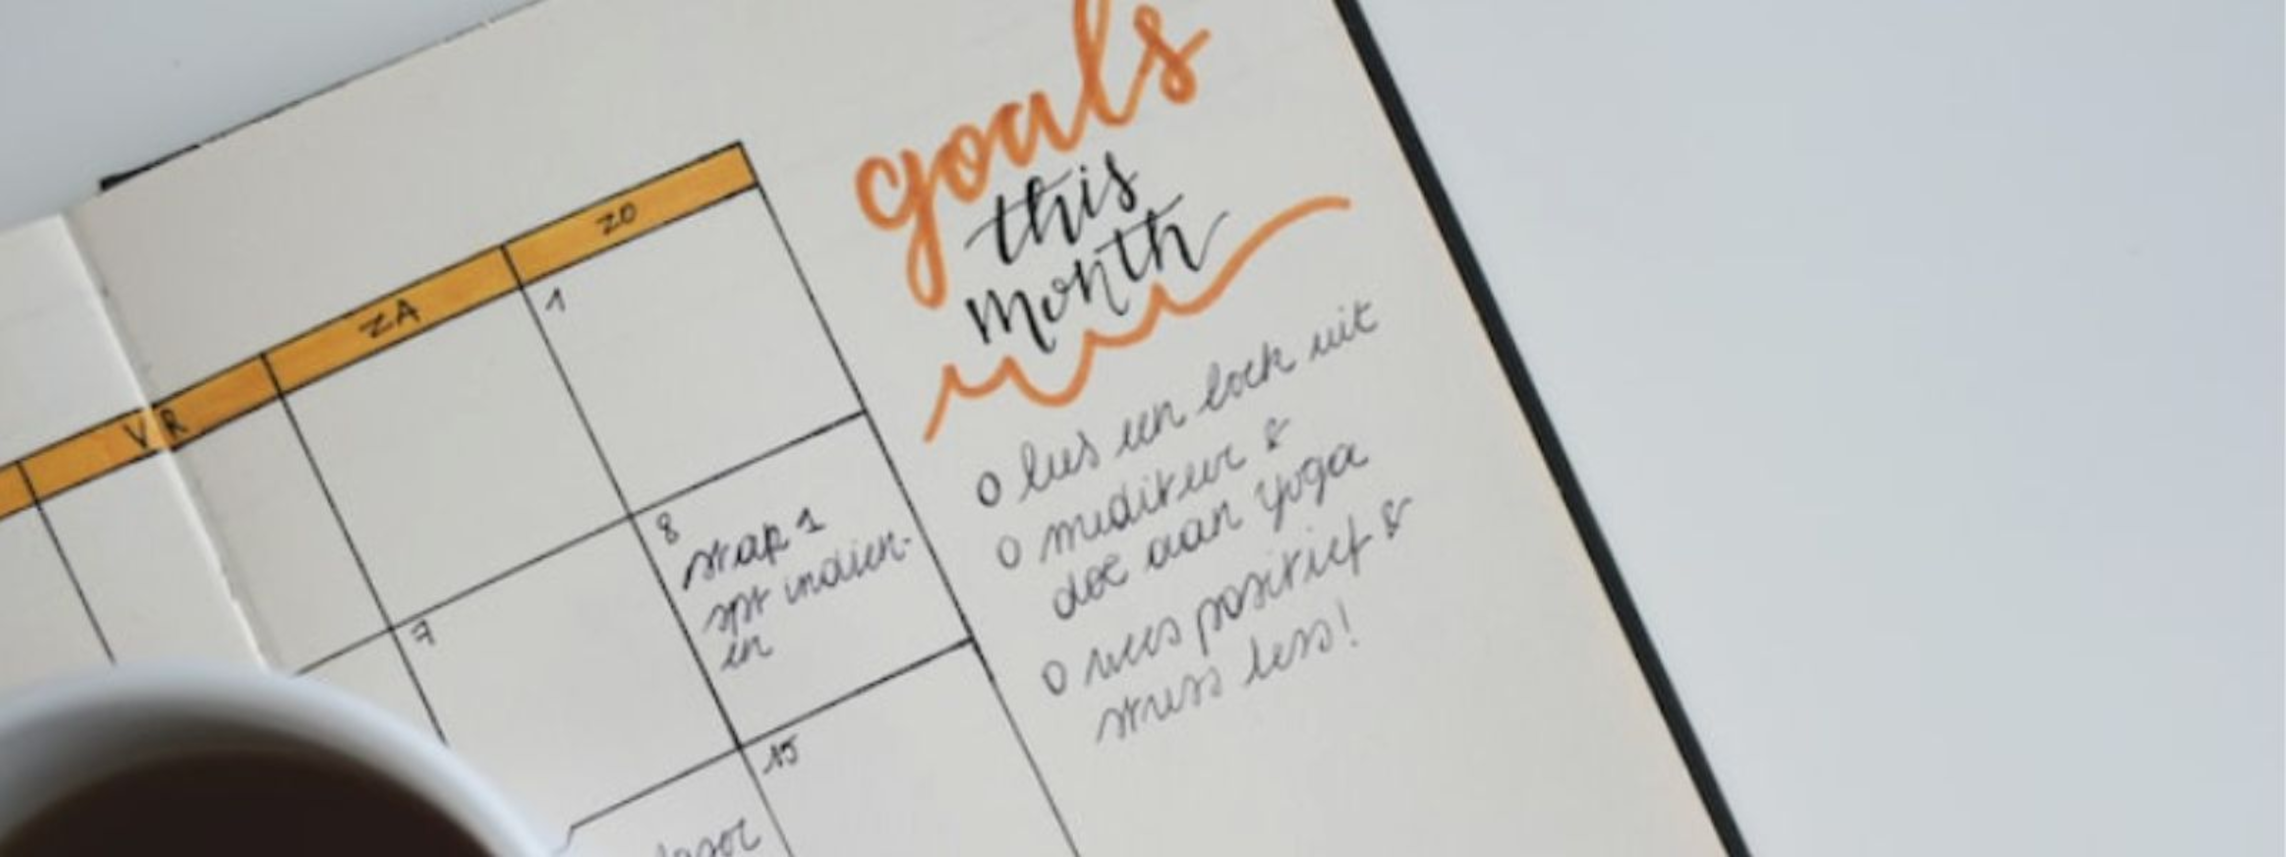 goals
this
month
VR
ZA
ZO
1
7
8
stap 1
spt indien-
en
15
o lees een boek uit
o mediteer &
doe aan yoga
o wees positief &
stress less!